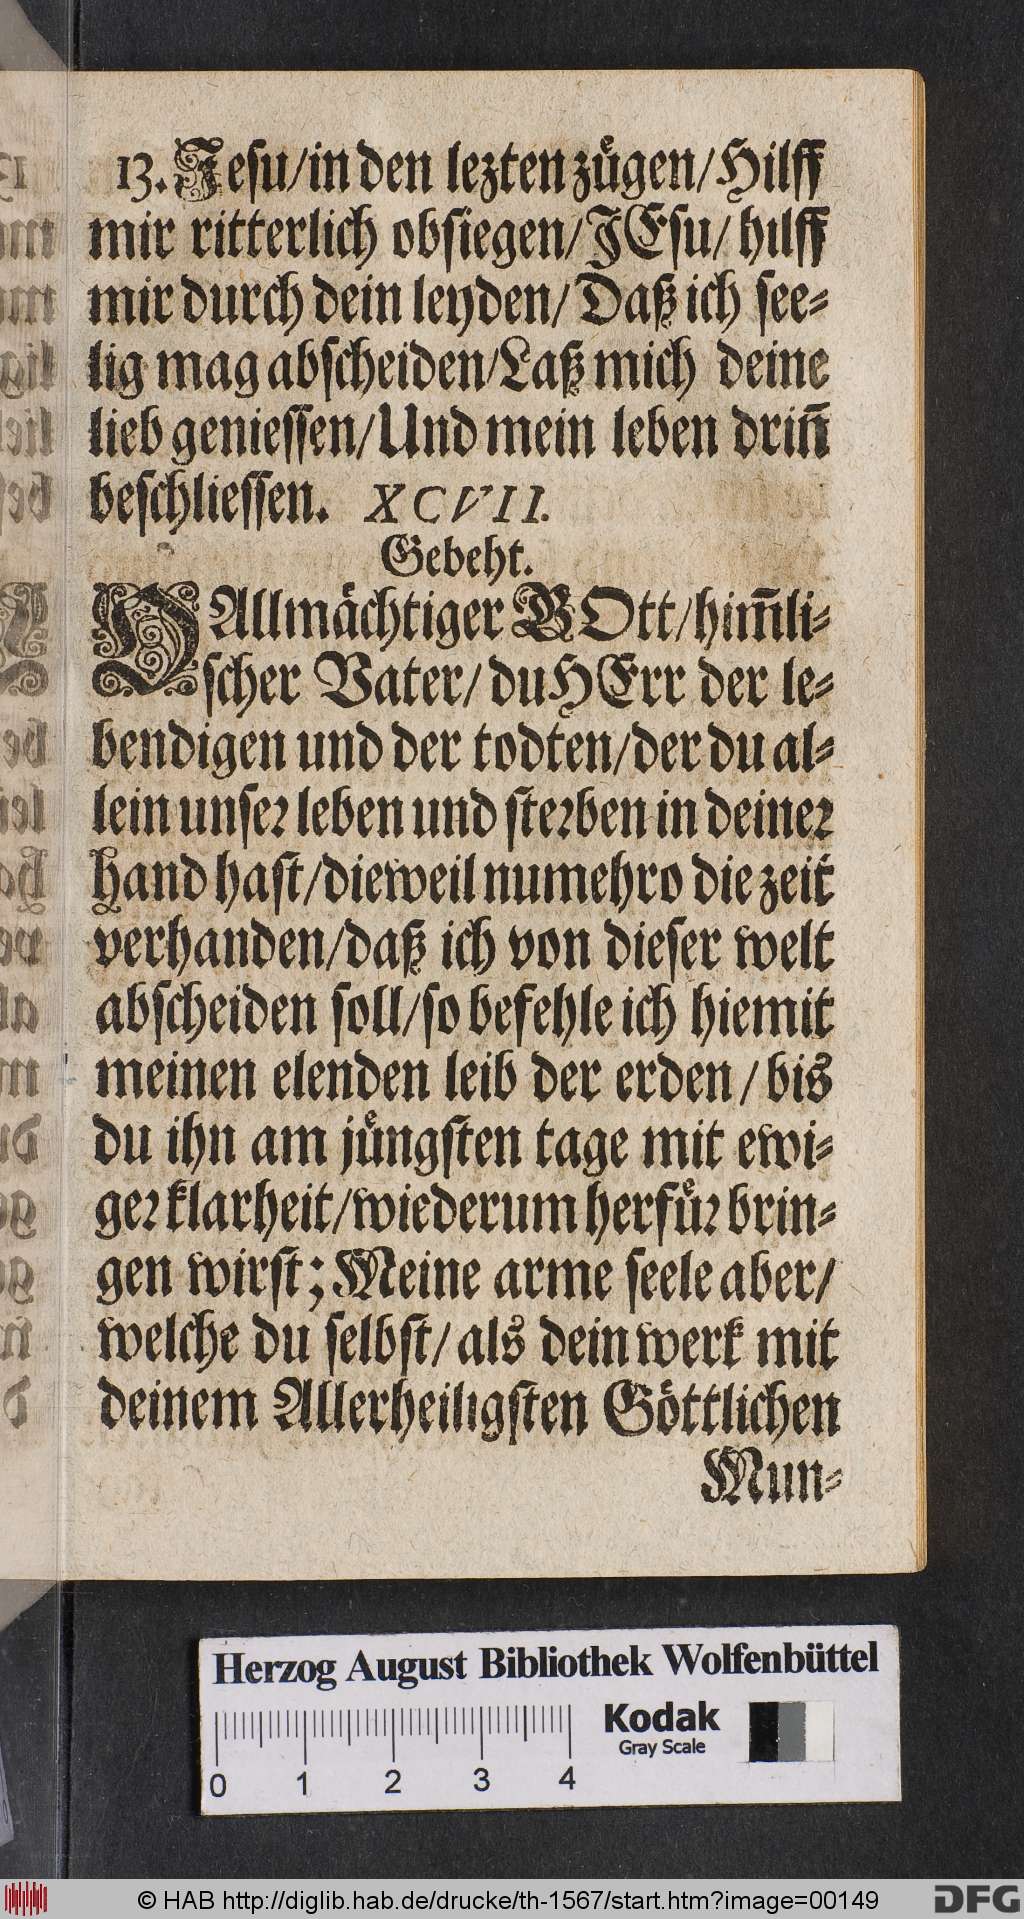 13. Jesu/in den lezten zuͤgen/Hilff
mir ritterlich obsiegen/JEsu/ hilff
mir durch dein leyden/ Daß ich see-
lig mag abscheiden/Laß mich deine
lieb geniessen/Und mein leben drin̄
beschliessen. XCVII.
Gebeht.
O Allmächtiger GOtt/him̄li-
scher Vater/ du HErr der le-
bendigen und der todten/der du al-
lein unser leben und sterben in deiner
hand hast/dieweil numehro die zeit
verhanden/daß ich von dieser welt
abscheiden soll/so befehle ich hiemit
meinen elenden leib der erden / bis
du ihn am juͤngsten tage mit ewi-
ger klarheit/wiederum herfuͤr brin-
gen wirst; Meine arme seele aber/
welche du selbst/ als dein werk mit
deinem Allerheiligsten Göttlichen
Mun-
Herzog August Bibliothek Wolfenbüttel
Kodak
Gray Scale
0 1 2 3 4
© HAB http://diglib.hab.de/drucke/th-1567/start.htm?image=00149
DFG